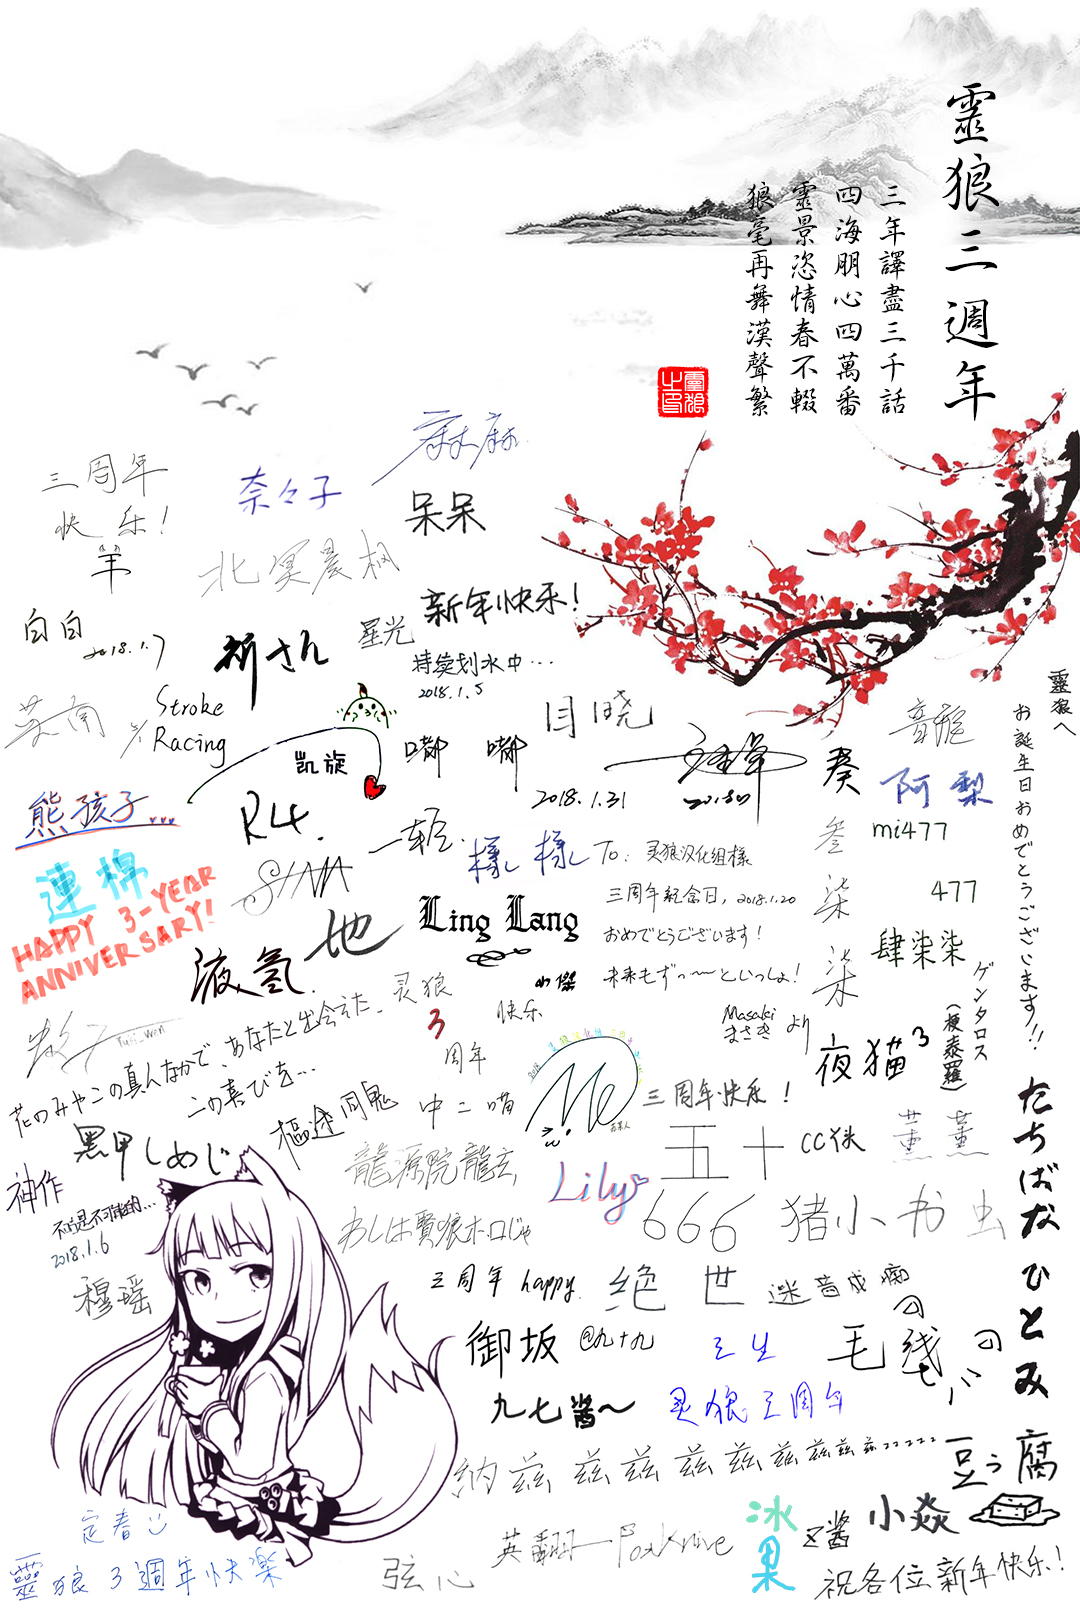 靈狼三週年
三年譯盡三千話
四海朋心四萬番
靈景恣情春不輟
狼毫再舞漢聲繁
麻麻
三周年
快乐!
羊
奈々子
呆呆
北冥晨枫
白白
2018.1.7
新年快乐!
星光
持续划水中…
2018.1.5
Stroke
Racing
凯旋
嘟嘟
闫晓
2018.1.31
葵
阿梨
熊孩子...
R4.
SINA
樣樣
To: 灵狼汉化组様
三周年紀念日, 2018.1.20
おめでとうございます!
未来もずっ〜〜といっしょ!
Masaki
まさき より
叁
柒
柒
mi477
477
肆柒柒
靈狼へ
お誕生日おめでとうございます!!
ゲンタロス
(梗泰羅)
たちばな ひとみ
連棉
HAPPY 3-YEAR
ANNIVERSARY!
液氢
地
Ling Lang
灵狼
3
周年
快乐
Yuri_Wen
花のみやこの真んなかで、あなたと出会えた、
この喜びを...
黑甲しめじ
樞途同鬼
中二喵
三周年快乐!
夜猫3
五十
CC侠
薰薰
神作
不可能是不可能的...
2018.1.6
穆瑶
龍源院龍玄
わしは賢狼ホロじゃ
Lily
666
猪小书虫
三周年 happy
绝世
迷音成痴
御坂
@九十九
三生
毛线
九七酱~
灵狼三周年
纳兹兹兹兹兹兹兹兹兹zzzzz
豆腐
定春
靈狼3週年快樂
弦心
英翻—FoxKnive
冰果
区酱
小焱
祝各位新年快乐!